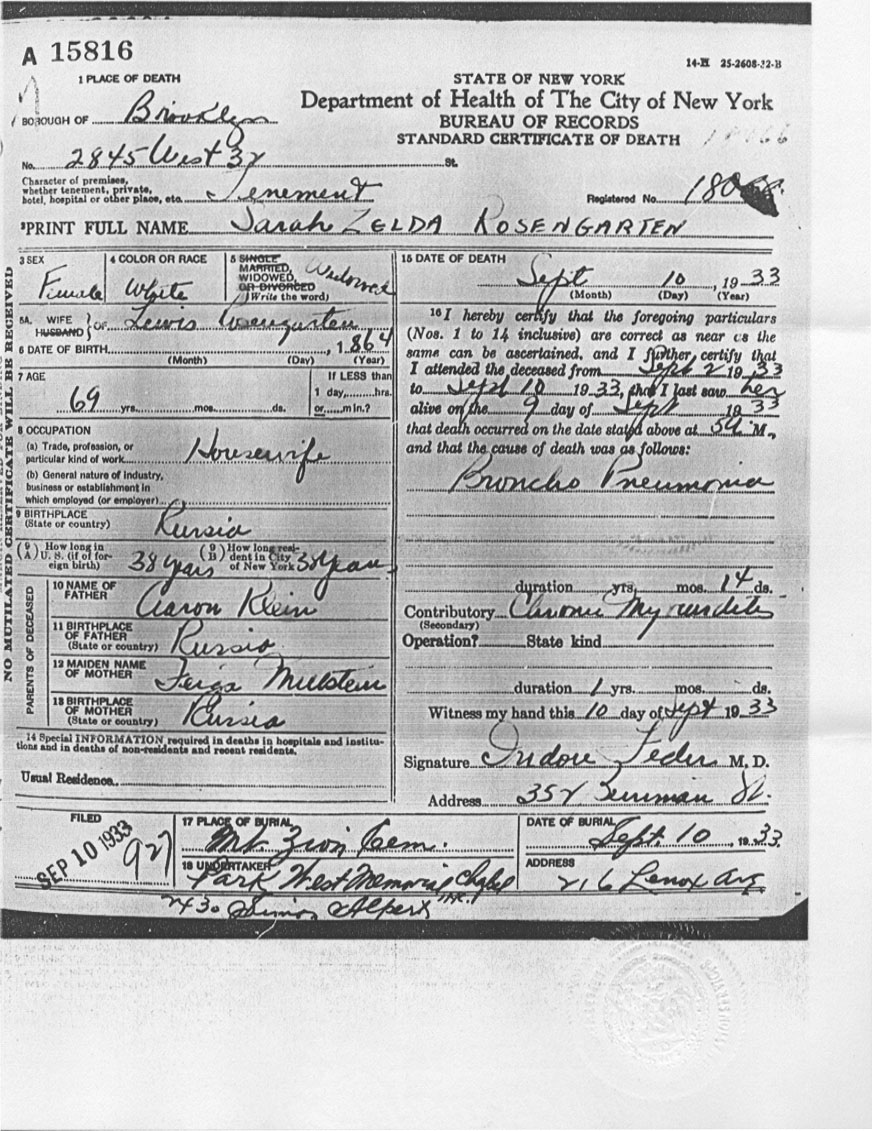 A 15816
14-H 25-2608-32-B
1 PLACE OF DEATH
STATE OF NEW YORK
Department of Health of The City of New York
BUREAU OF RECORDS
STANDARD CERTIFICATE OF DEATH
BOROUGH OF Brooklyn
No. 2845 West 32 St.
Character of premises,
whether tenement, private,
hotel, hospital or other place, etc. Tenement
Registered No. 180
PRINT FULL NAME Sarah ZELDA ROSENGARTEN
NO MUTILATED CERTIFICATE WILL BE RECEIVED
3 SEX
Female
4 COLOR OR RACE
White
5 SINGLE
MARRIED,
WIDOWED,
OR DIVORCED
(Write the word)
Widowed
5A. WIFE
HUSBAND } OF Lewis Rosengarten
6 DATE OF BIRTH , 1864
(Month) (Day) (Year)
7 AGE
69 yrs. mos. ds.
If LESS than
1 day, hrs.
or min.?
8 OCCUPATION
(a) Trade, profession, or
particular kind of work Housewife
(b) General nature of industry,
business or establishment in
which employed (or employer)
9 BIRTHPLACE
(State or country) Russia
(9A) How long in
U. S. (if of for-
eign birth) 38 years
(9B) How long resi-
dent in City
of New York 38 years
PARENTS OF DECEASED
10 NAME OF
FATHER Aaron Klein
11 BIRTHPLACE
OF FATHER
(State or country) Russia
12 MAIDEN NAME
OF MOTHER Feiga Millstein
13 BIRTHPLACE
OF MOTHER
(State or country) Russia
14 Special INFORMATION required in deaths in hospitals and institu-
tions and in deaths of non-residents and recent residents.
Usual Residence
15 DATE OF DEATH
Sept 10, 1933
(Month) (Day) (Year)
16 I hereby certify that the foregoing particulars
(Nos. 1 to 14 inclusive) are correct as near as the
same can be ascertained, and I further certify that
I attended the deceased from Sept 2 1933
to Sept 10 1933, that I last saw her
alive on the 9 day of Sept 1933
that death occurred on the date stated above at M.,
and that the cause of death was as follows:
Broncho Pneumonia
duration yrs. mos. 14 ds.
Contributory Chronic
(Secondary)
Operation? State kind
duration 1 yrs. mos. ds.
Witness my hand this 10 day of Sept 1933
Signature Feder M. D.
Address 352 Berriman St.
FILED
SEP 10 1933
927
17 PLACE OF BURIAL
Mt. Zion Cem.
DATE OF BURIAL
Sept. 10, 1933
18 UNDERTAKER
Park West Memorial Chapel Inc.
ADDRESS
216 Lenox Ave
2430 Simon Alpert